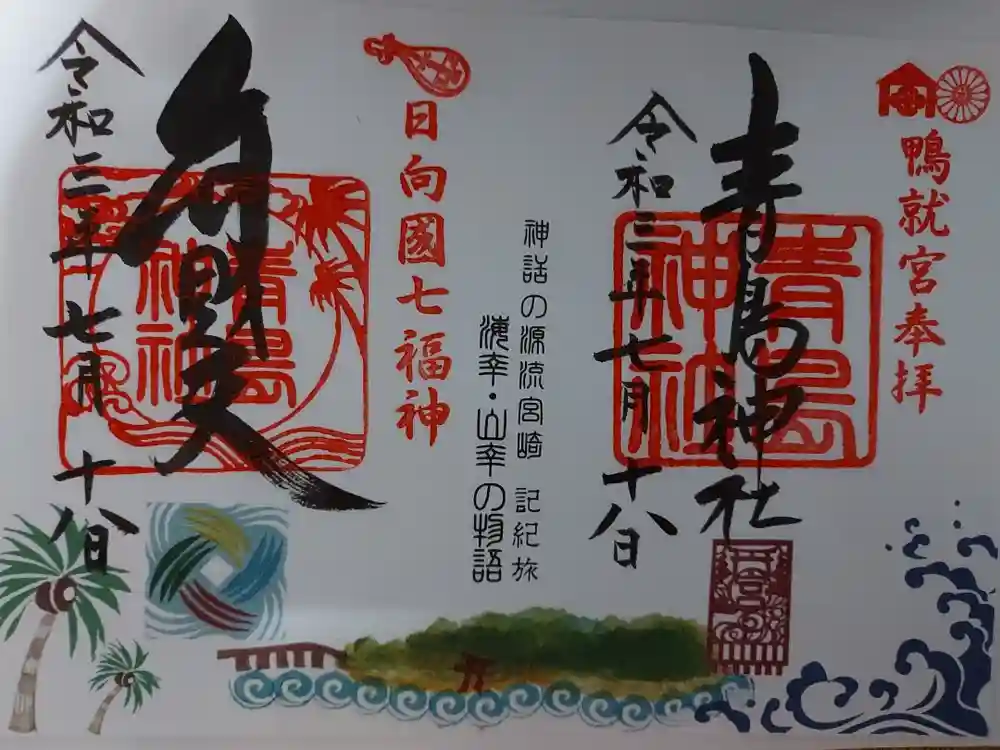 鴨就宮奉拝
青島神社
青島
神社
令和三年七月十八日
神話の源流宮崎 記紀旅
海幸・山幸の物語
日向國七福神
弁財天
青島
神社
令和三年七月十八日